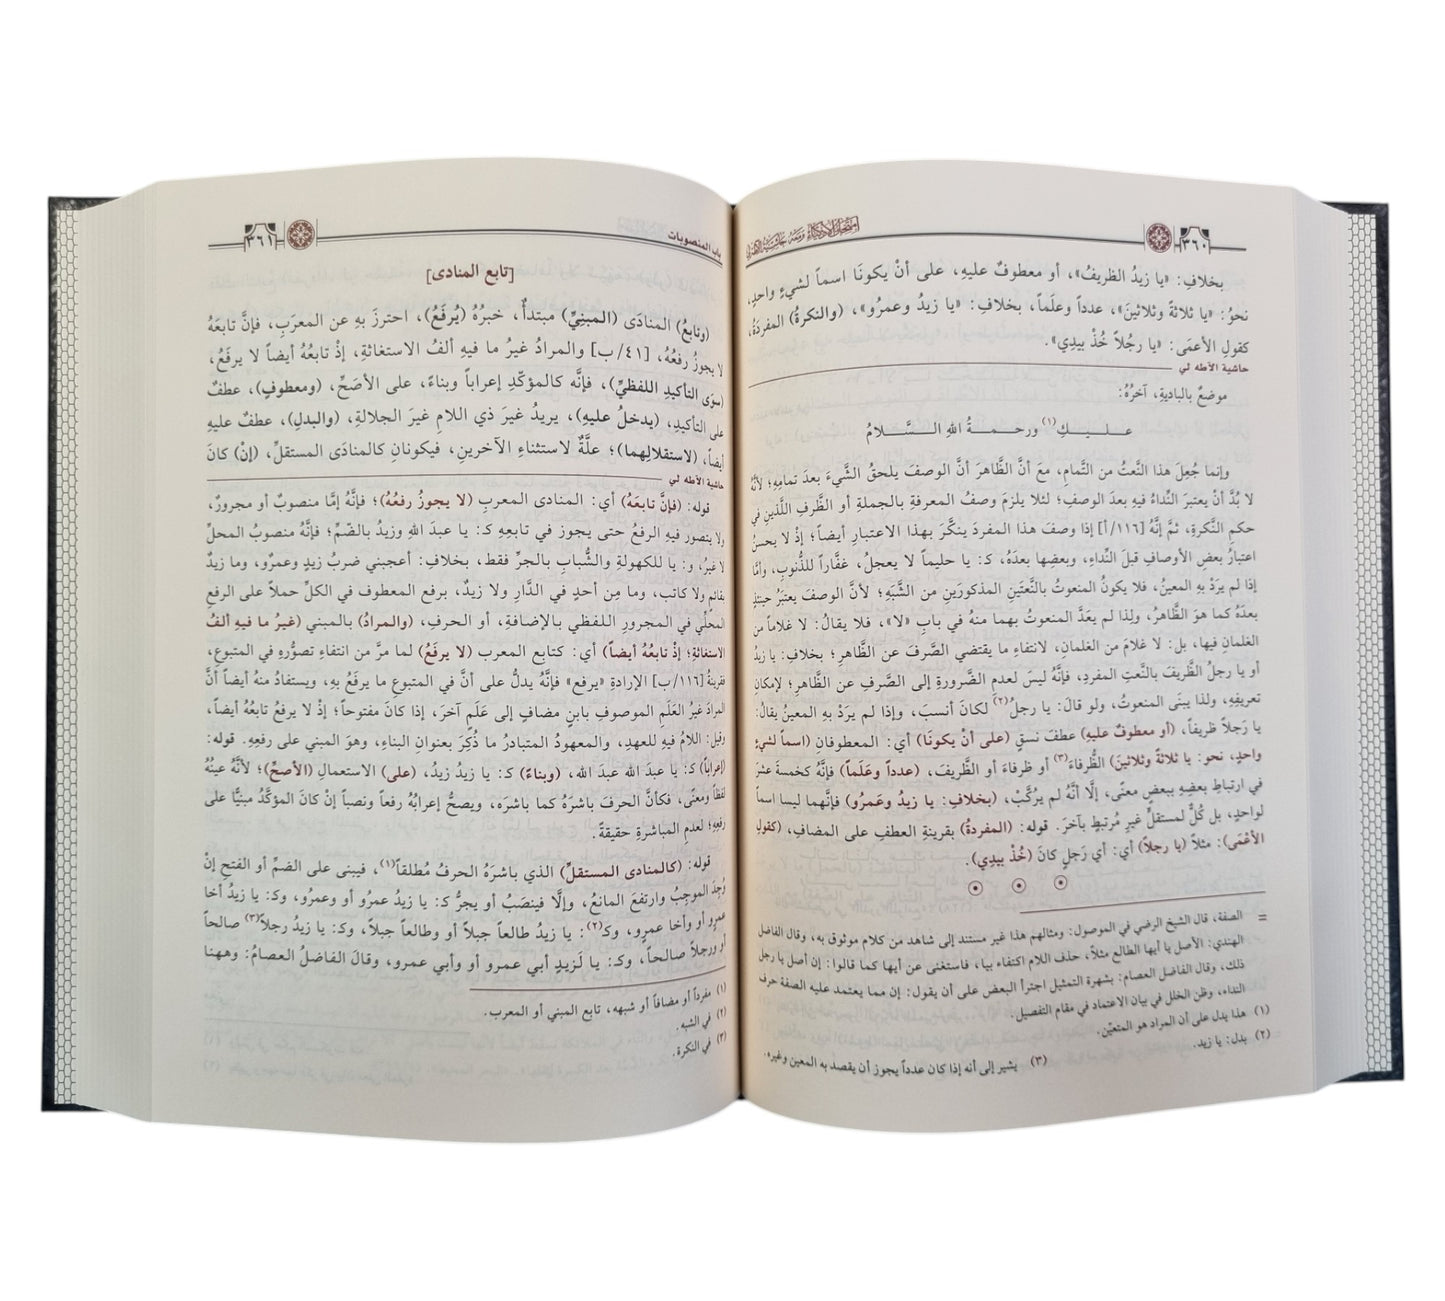 ٣٦٠
بخلافِ: «يا زيدُ الظريفُ»، أو معطوفٌ عليهِ، على أنْ يكونَا اسماً لشيءٍ واحدٍ،
نحوُ: «يا ثلاثةً وثلاثينَ»، عدداً وعلَماً، بخلافِ: «يا زيدُ وعمرُو»، (والنكرةُ) المفردَةُ،
كقولِ الأعمَى: «يا رجُلاً خُذْ بيدِي».
حاشية الأطه لي
موضعٌ بالباديةِ، آخرُهُ:
عـلـيـكِ(١) ورحـمـةُ اللهِ الـسَّـلامُ
وإنما جُعِلَ هذا النَّعتُ من التَّمامِ، معَ أنَّ الظَّاهرَ أنَّ الوصفَ يلحقُ الشَّيءَ بعدَ تمامِهِ؛ لأنَّهُ
لا بُدَّ أنْ يعتبرَ النِّداءُ فيهِ بعدَ الوصفِ؛ لئلا يلزمَ وصفُ المعرفةِ بالجملةِ أو الظَّرفِ اللَّذينِ في
حكمِ النَّكرةِ، ثمَّ إنَّهُ [١١٦/أ] إذا وصفَ هذا المفردَ ينكَّرَ بهذا الاعتبارِ أيضاً؛ إذْ لا يحسنُ
اعتبارُ بعضِ الأوصافِ قبلَ النِّداءِ، وبعضِها بعدَهُ، كـ: يا حليماً لا يعجلُ، غفَّاراً للذُّنوبِ، وأمَّا
إذا لم يردْ بهِ المعينُ، فلا يكونُ المنعوتُ بالنَّعتَينِ المذكورَينِ من الشَّبَهِ؛ لأنَّ الوصفَ يعتبرُ حينئذٍ
بعدَهُ كما هوَ الظَّاهرُ، ولذا لم يعَدَّ المنعوتُ بهما منهُ في بابِ «لا»، فلا يقالُ: لا غلاماً من
الغلمانِ فيها، بل: لا غلامَ من الغلمانِ، لانتفاءِ ما يقتضي الصَّرفَ عن الظَّاهرِ؛ بخلافِ: يا زيدُ
أو يا رجلُ الظَّريفَ بالنَّعتِ المفردِ، فإنَّهُ ليسَ لعدمِ الضَّرورةِ إلى الصَّرفِ عن الظَّاهرِ؛ لإمكانِ
تعريفِهِ، ولذا يبنَى المنعوتُ، ولو قالَ: يا رجلُ(٢) لكانَ أنسبَ، وإذا لم يرَدْ بهِ المعينُ يقالُ:
يا رَجلاً ظريفاً، (أو معطوفٌ عليهِ) عطفَ نسقٍ (على أنْ يكونَا) أي: المعطوفانِ (اسماً لشيءٍ
واحدٍ، نحو: يا ثلاثةً وثلاثينَ) الظُّرفاءَ(٣) أو ظرفاءَ أو الظَّريفَ، (عدداً وعَلَماً) فإنَّهُ كخمسةَ عشرَ
في ارتباطِ بعضِهِ ببعضٍ معنًى، إلَّا أنَّهُ لم يركَّبْ، (بخلافِ: يا زيدُ وعَمرُو) فإنَّهما ليسا اسماً
لواحدٍ، بل كُلٌّ لمستقلٍّ غيرِ مُرتبطٍ بآخرَ. قوله: (المفردةُ) بقرينةِ العطفِ على المضافِ، (كقولِ
الأعْمَى): مثلاً (يا رجلاً) أي: أي رَجلٍ كانَ (خُذْ بيدِي).
= الصفة، قال الشيخ الرضي في الموصول: ومثالهم هذا غير مستند إلى شاهد من كلام موثوق به، وقال الفاضل
الهندي: الأصل يا أيها الطالع مثلاً، حذف اللام اكتفاء بيا، فاستغنى عن أيها كما قالوا: إن أصل يا رجل
ذلك، وقال الفاضل العصام: بشهرة التمثيل اجترأ البعض على أن يقول: إن مما يعتمد عليه الصفة حرف
النداء، وظن الخلل في بيان الاعتماد في مقام التفصيل.
(١) هذا يدل على أن المراد هو المتعيّن.
(٢) بدل: يا زيد.
(٣) يشير إلى أنه إذا كان عدداً يجوز أن يقصد به المعين وغيره.
باب المنصوبات
٣٦١
[تابع المنادى]
(وتابعُ) المنادَى (المبنِيِّ) مبتدأٌ، خبرُهُ (يُرفَعُ)، احترزَ بهِ عن المعرَبِ، فإنَّ تابعَهُ
لا يجوزُ رفعُهُ، [٤١/ب] والمرادُ غيرُ ما فيهِ ألفُ الاستغاثةِ، إذْ تابعُهُ أيضاً لا يرفَعُ،
(سوَى التأكيدِ اللفظيِّ)، فإنَّه كالمؤكّدِ إعراباً وبناءً، على الأصَحِّ، (ومعطوفٍ)، عطفٌ
على التأكيدِ، (يدخلُ عليهِ)، يريدُ غيرَ ذي اللامِ غيرَ الجلالةِ، (والبدلِ)، عطفٌ عليهِ
أيضاً، (لاستقلالِهما)؛ علَّةٌ لاستثناءِ الآخرينِ، فيكونانِ كالمنادَى المستقلِّ، (إنْ) كانَ
حاشية الأطه لي
قوله: (فإنَّ تابعَهُ) أي: المنادى المعربِ (لا يجوزُ رفعُهُ)؛ فإنَّهُ إمَّا منصوبٌ أو مجرورٌ،
ولا يتصور فيهِ الرفعُ حتى يجوز في تابعِهِ كـ: يا عبدَ اللهِ وزيدُ بالضّمِّ؛ فإنَّهُ منصوبُ المحلِّ
لا غيرُ، و: يا للكهولةِ والشُّبابِ بالجرِّ فقط، بخلافِ: أعجبني ضربُ زيدٍ وعمرٌو، وما زيدٌ
بقائمٍ ولا كاتب، وما مِن أحدٍ في الدَّارِ ولا زيدٌ، برفع المعطوف في الكلِّ حملاً على الرفعِ
المحلِّي في المجرورِ اللفظي بالإضافةِ، أو الحرفِ، (والمرادُ) بالمبني (غيرُ ما فيهِ ألفُ
الاستغاثةِ؛ إذْ تابعُهُ أيضاً) أي: كتابع المعرب (لا يرفَعُ) لما مرَّ من انتفاءِ تصوُّرِهِ في المتبوعِ،
فقرينةُ [١١٦/ب] الإرادةِ «يرفع» فإنَّهُ يدلُّ على أنَّ في المتبوعِ ما يرفَعُ بهِ، ويستفادُ منهُ أيضاً أنَّ
المرادَ غيرُ العَلَمِ الموصوفِ بابنٍ مضافٍ إلى عَلَمٍ آخرَ، إذا كانَ مفتوحاً؛ إذْ لا يرفعُ تابعُهُ أيضاً،
وقيل: اللامُ فيهِ للعهدِ، والمعهودُ المتبادرُ ما ذُكِرَ بعنوانِ البناءِ، وهوَ المبني على رفعِهِ. قوله:
(إعراباً) كـ: يا عبدَ الله عبدَ الله، (وبناءً) كـ: يا زيدُ زيدُ، (على) الاستعمالِ (الأصحِّ)؛ لأنَّهُ عينُهُ
لفظاً ومعنًى، فكأنَّ الحرفَ باشرَهُ كما باشرَه، ويصحُّ إعرابُهُ رفعاً ونصباً إنْ كانَ المؤكَّدُ مبنيًّا على
رفعِهِ؛ لعدمِ المباشرةِ حقيقةً.
قوله: (كالمنادى المستقلِّ) الذي باشرَهُ الحرفُ مُطلقاً(١)، فيبنى على الضمِّ أو الفتحِ إنْ
وُجِدَ الموجِبُ وارتفعَ المانعُ، وإلَّا فينصَبُ أو يجرُّ كـ: يا زيدُ عمرُو أو وعمرُو، وكـ: يا زيدُ أخا
عمرٍو أو وأخا عمرٍو، وكـ(٢): يا زيدُ طالعاً جبلاً أو وطالعاً جبلاً، وكـ: يا زيدُ رجلاً(٣) صالحاً
أو ورجلاً صالحاً، وكـ: يا لَزيدٍ أبي عمرو أو وأبي عمرو، وقالَ الفاضلُ العصامُ: وههنا
(١) مفرداً أو مضافاً أو شبهه، تابع المبني أو المعرب.
(٢) في الشبه.
(٣) في النكرة.